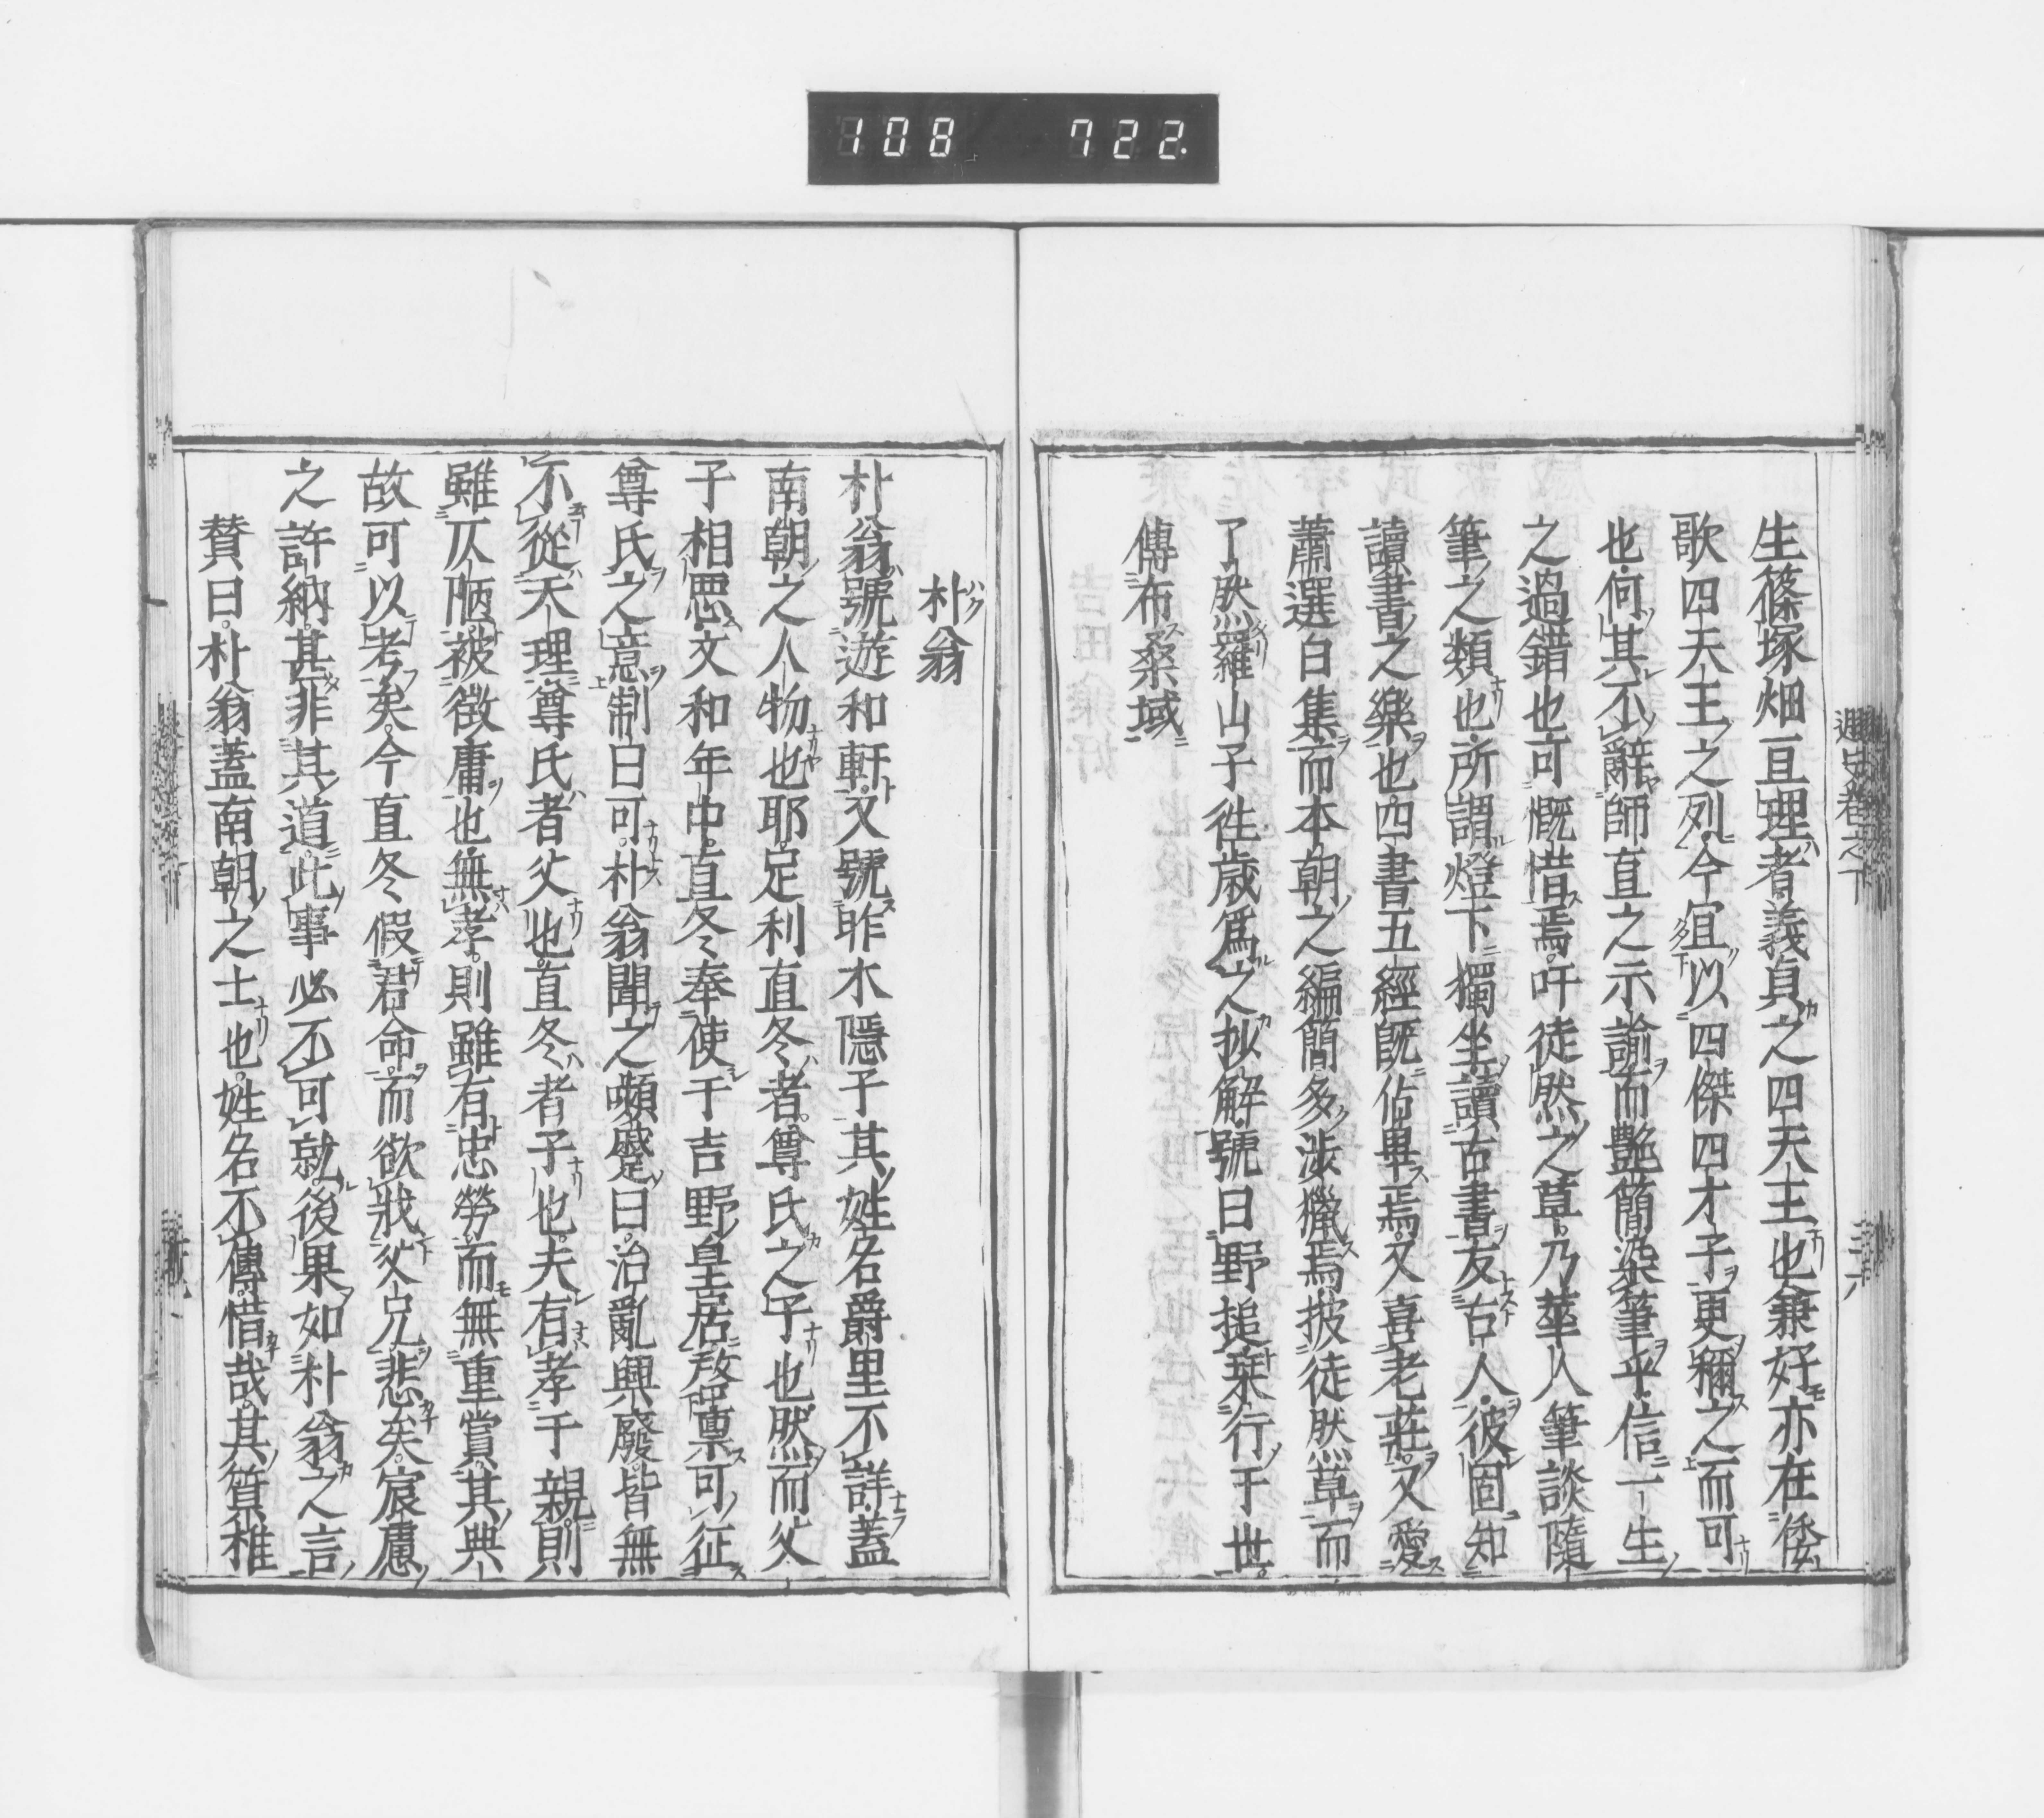 108 722
生篠塚畑亘理者義貞之四天王也兼好亦在倭
歌四天王之列今宜以四傑四才子更稱之而可
也何其不辭師直之示諭而艷簡染筆乎信一生
之過錯也可慨惜焉吁徒然之草乃華人筆談隨
筆之類也所謂燈下獨坐讀古書友古人彼固知
讀書之樂也四書五經既佔畢焉又喜老莊又愛
蕭選白集而本朝之編簡多涉獵焉披徒然草而
了然羅山子往歲爲之抄解號曰野槌棊行于世
傳布桑域
朴翁
朴翁號遊和軒又號昨木隱子其姓名爵里不詳蓋
南朝之人物也耶足利直冬者尊氏之子也然而父
子相惡文和年中直冬奉使于吉野皇居啓稟可征
尊氏之意制曰可朴翁聞之嚬蹙曰治亂興廢皆無
不從天理尊氏者父也直冬者子也夫有孝于親則
雖仄陋被徵庸也無孝則雖有忠勞而無重賞其典
故可以考矣今直冬假君命而欲戕父兄悲矣宸慮
之許納甚非其道此事必不可就後果如朴翁之言
贊曰朴翁蓋南朝之士也姓名不傳惜哉其質椎